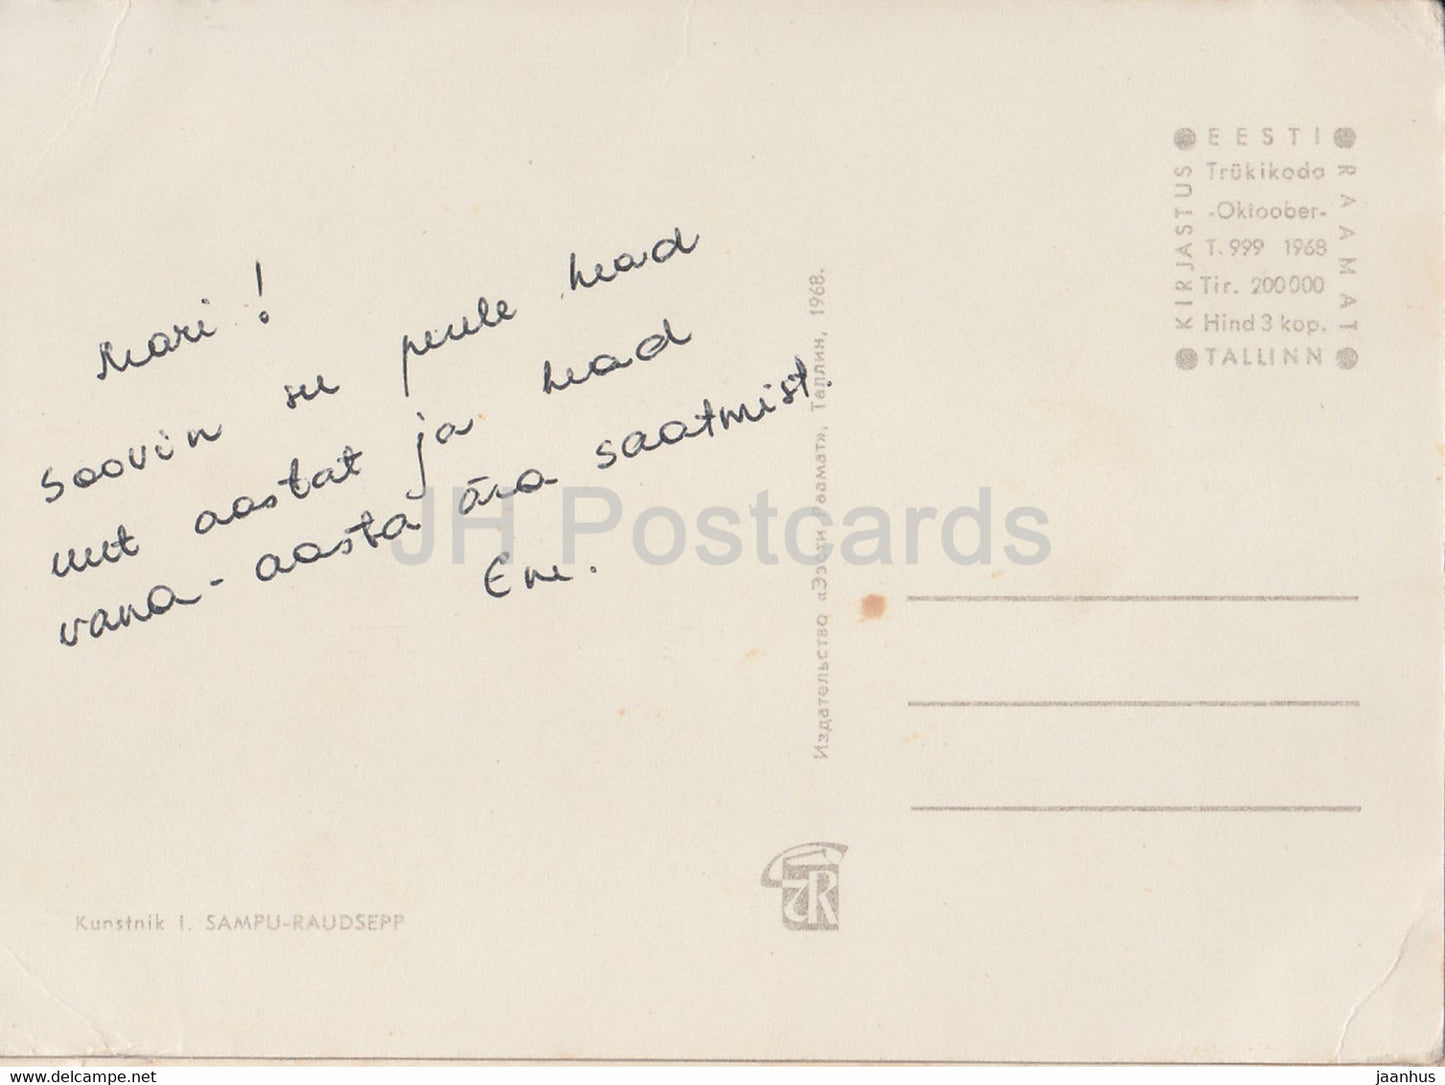 Mari!
Soovin su perele head
uut aastat ja head
vana-aasta ära saatmist.
Ene.
JH Postcards
Издательство «Ээсти Раамат», Таллин, 1968.
EESTI
RAAMAT
KIRJASTUS
Trükikoda
-Oktoober-
T. 999 1968
Tir. 200 000
Hind 3 kop.
TALLINN
ER
Kunstnik I. SAMPU-RAUDSEPP
www.delcampe.net
jaanhus